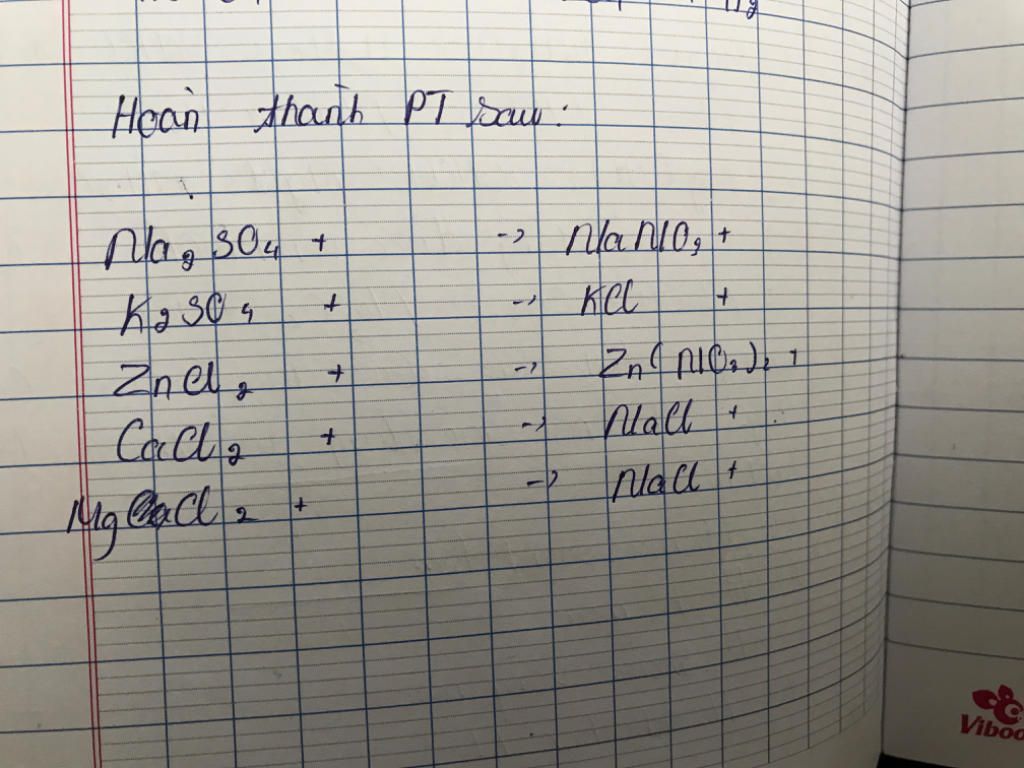 Hoàn thành PT sau:
Na₂SO₄ + -> NaNO₃ +
K₂SO₄ + -> KCl +
ZnCl₂ + -> Zn(NO₃)₂ +
CaCl₂ + -> NaCl +
MgCl₂ + -> NaCl +
Viboo